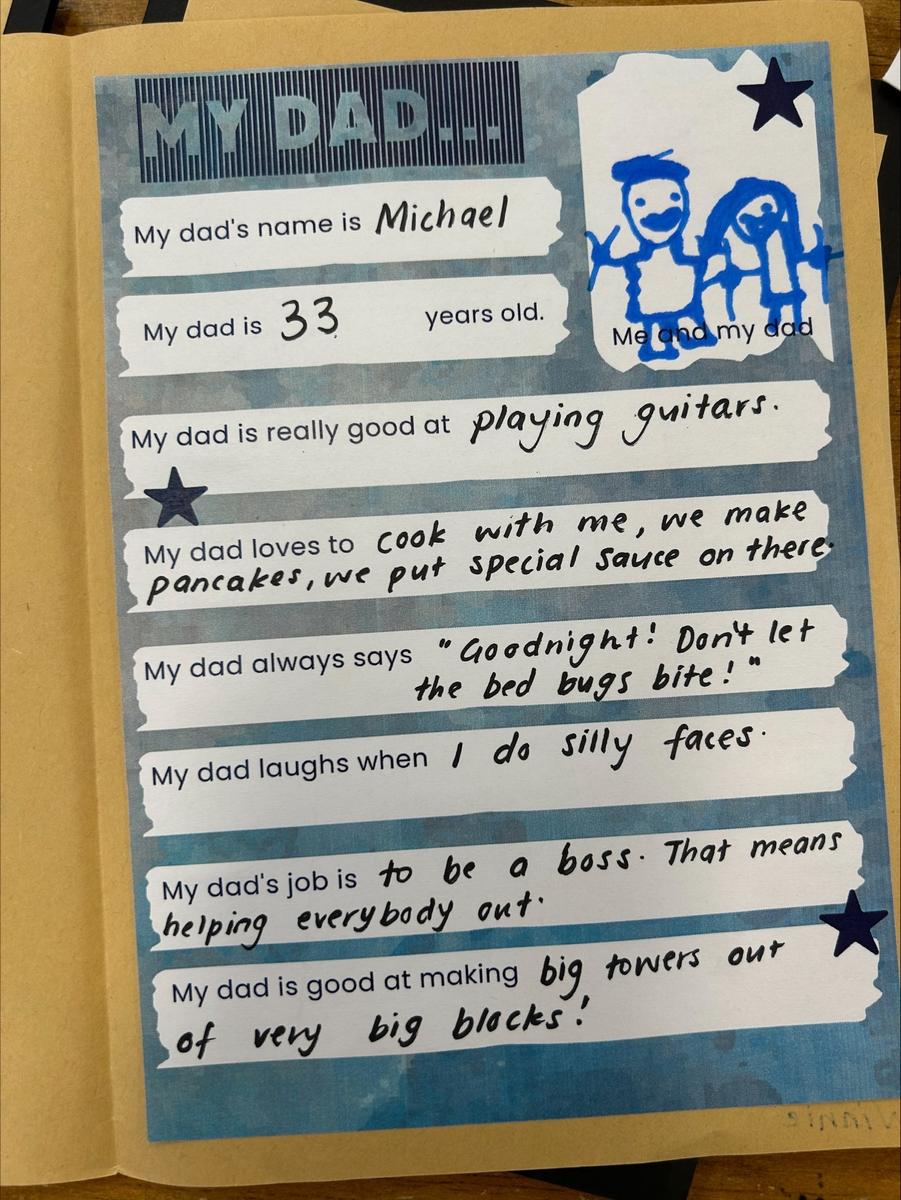 MY DAD...
My dad's name is Michael
My dad is 33 years old.
Me and my dad
My dad is really good at playing guitars.
My dad loves to cook with me, we make
pancakes, we put special sauce on there.
My dad always says "Goodnight! Don't let
the bed bugs bite!"
My dad laughs when I do silly faces.
My dad's job is to be a boss. That means
helping everybody out.
My dad is good at making big towers out
of very big blocks!